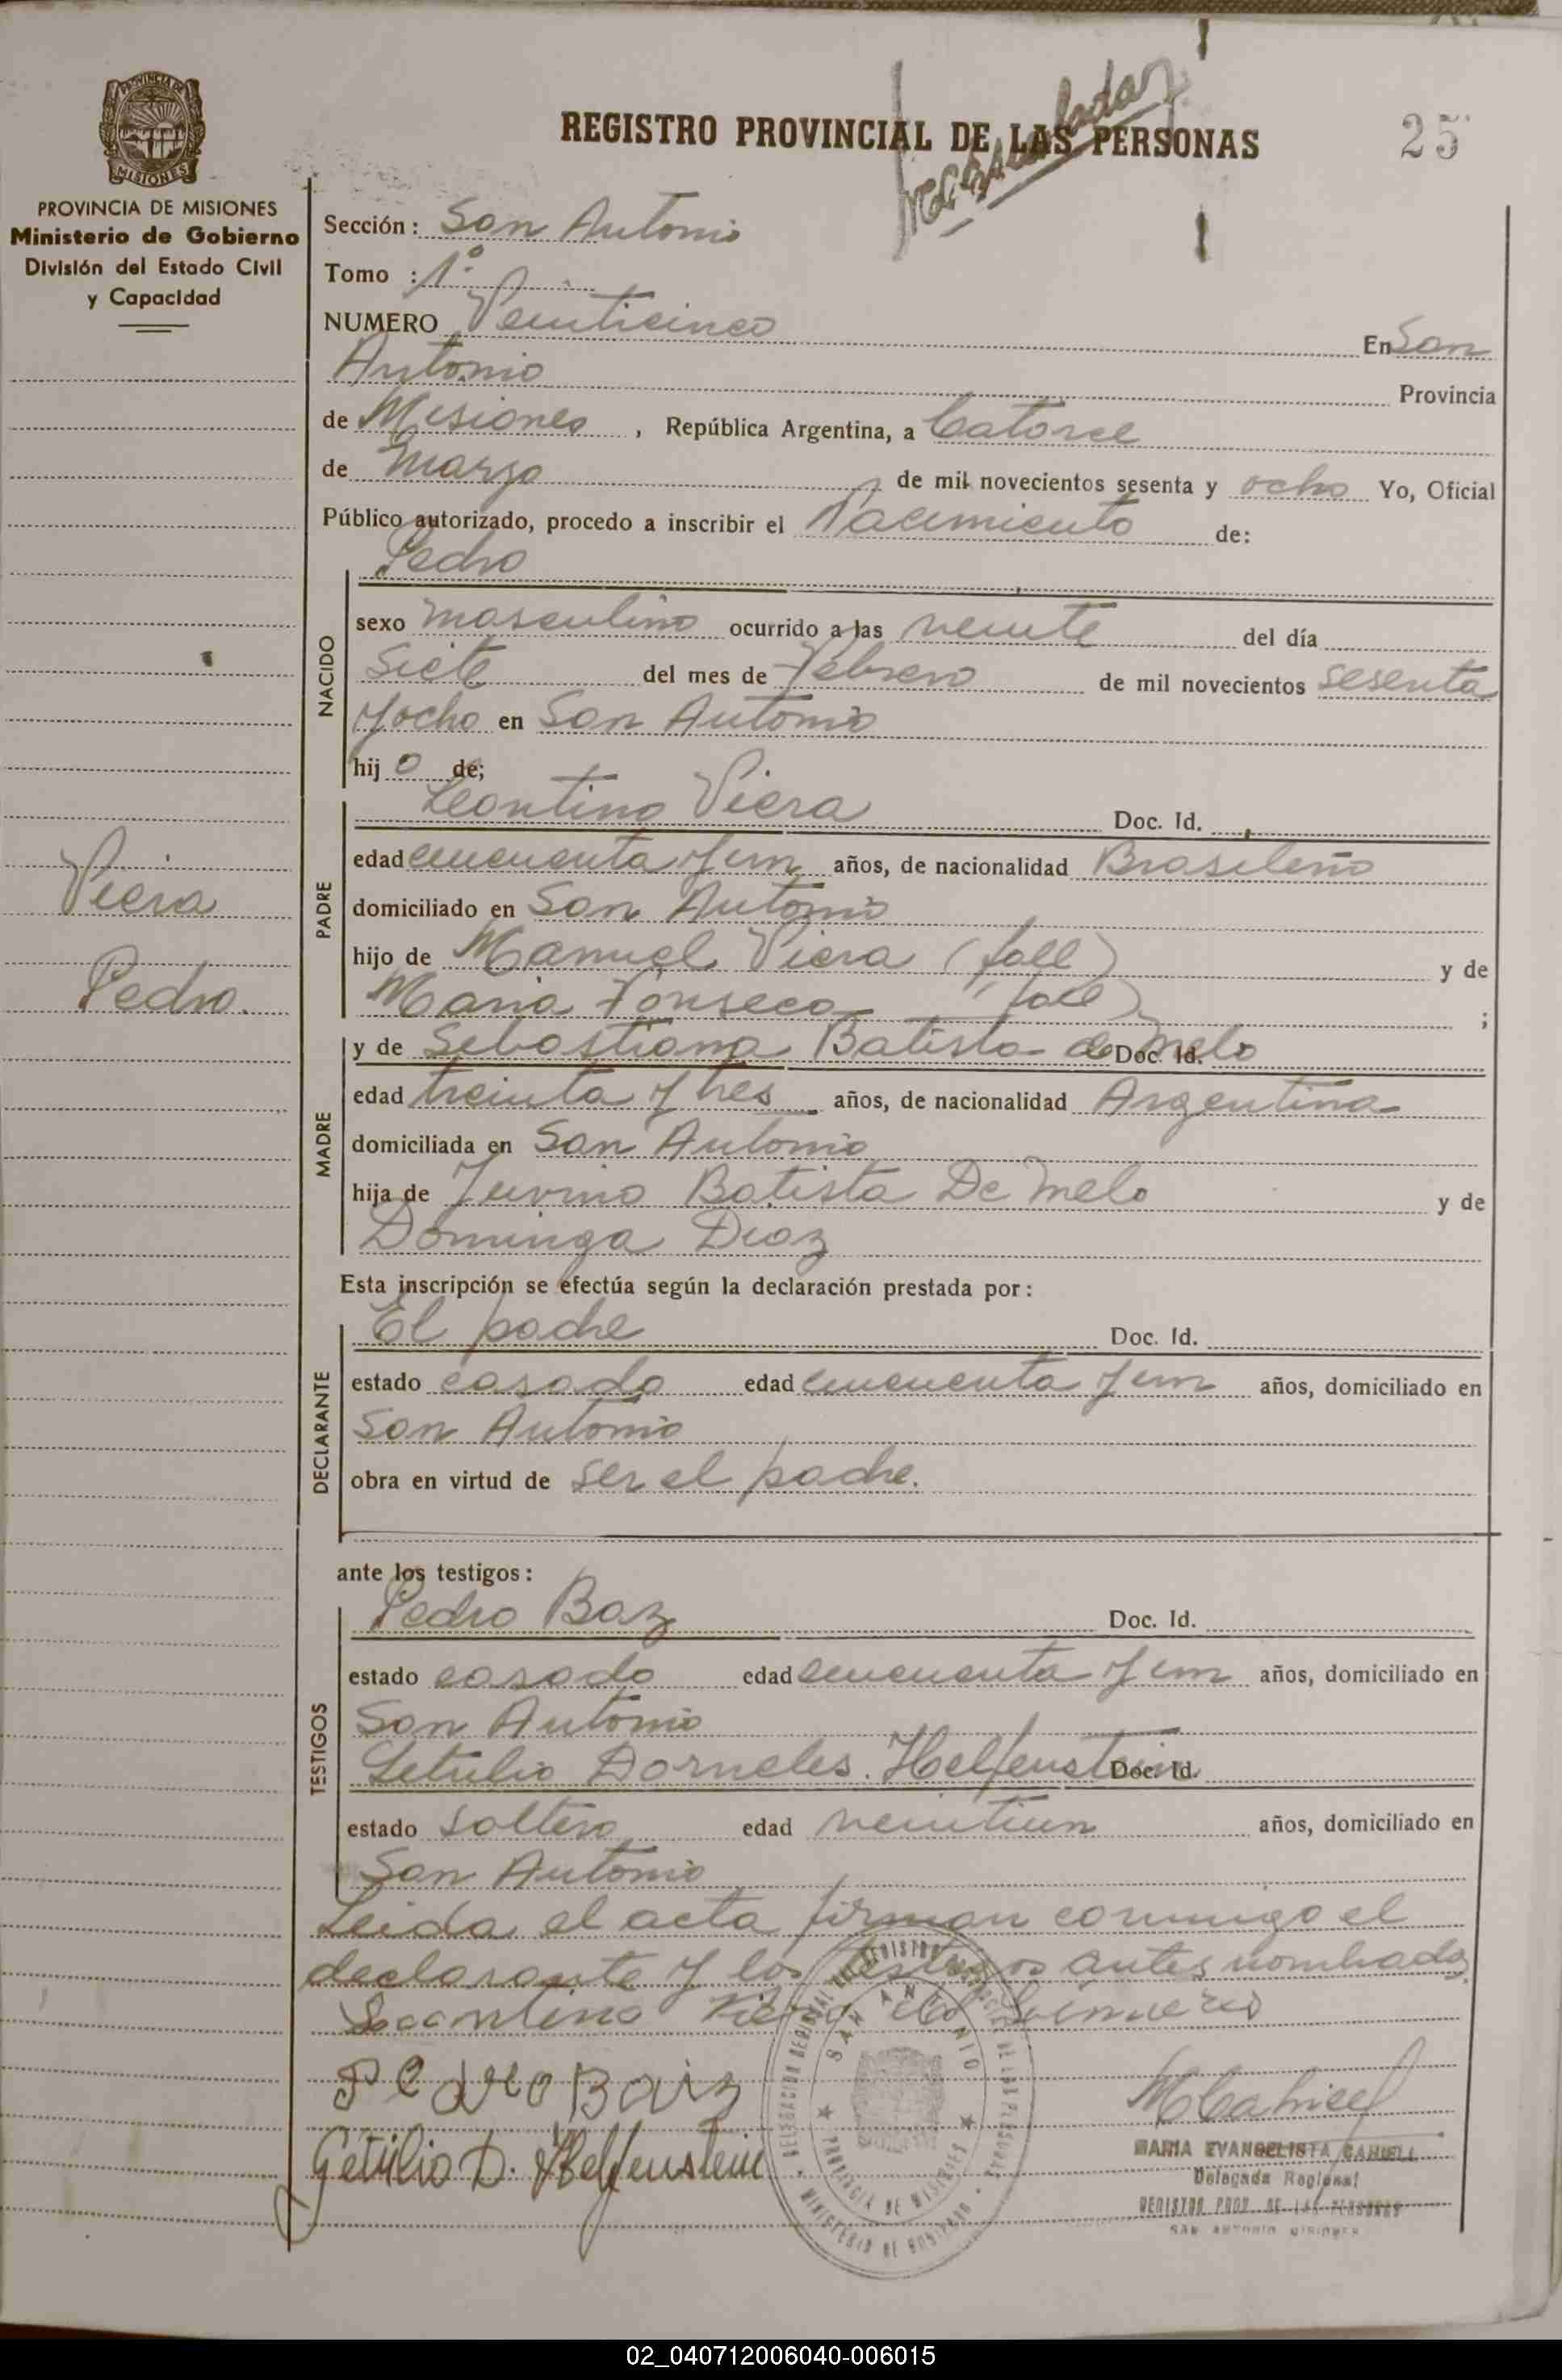 REGISTRO PROVINCIAL DE LAS PERSONAS
25
PROVINCIA DE MISIONES
Ministerio de Gobierno
División del Estado Civil
y Capacidad
Sección: San Antonio
Tomo : 1º
NUMERO Veinticinco En San
Antonio Provincia
de Misiones, República Argentina, a Catorce
de Marzo de mil novecientos sesenta y ocho Yo, Oficial
Público autorizado, procedo a inscribir el Nacimiento de:
NACIDO
Pedro
sexo masculino ocurrido a las veinte del día
siete del mes de Febrero de mil novecientos sesenta
y ocho en San Antonio
hij o de;
PADRE
Leontino Viera Doc. Id.
edad cincuenta y un años, de nacionalidad Brasileño
domiciliado en San Antonio
hijo de Manuel Viera (fall) y de
Maria Fonseca (fall) ;
Viera
Pedro.
MADRE
y de Sebastiana Batista de Melo Doc. Id.
edad treinta y tres años, de nacionalidad Argentina
domiciliada en San Antonio
hija de Juvino Batista De Melo y de
Dominga Diaz
Esta inscripción se efectúa según la declaración prestada por:
DECLARANTE
El padre Doc. Id.
estado casado edad cincuenta y un años, domiciliado en
San Antonio
obra en virtud de ser el padre.
ante los testigos:
TESTIGOS
Pedro Baz Doc. Id.
estado casado edad cincuenta y un años, domiciliado en
San Antonio
Getulio Dorneles Helfenstein Doc. Id.
estado soltero edad veintiun años, domiciliado en
San Antonio
Leida el acta firman conmigo el
declarante y los testigos antes nombrados
Pedro Baiz
Getúlio D. Helfenstein
SAN ANTONIO
PROVINCIA DE MISIONES
MINISTERIO DE GOBIERNO
MARIA EVANGELISTA CAHUELL
Delegada Regional
REGISTRO PROV. DE LAS PERSONAS
SAN ANTONIO MISIONES
02_040712006040-006015